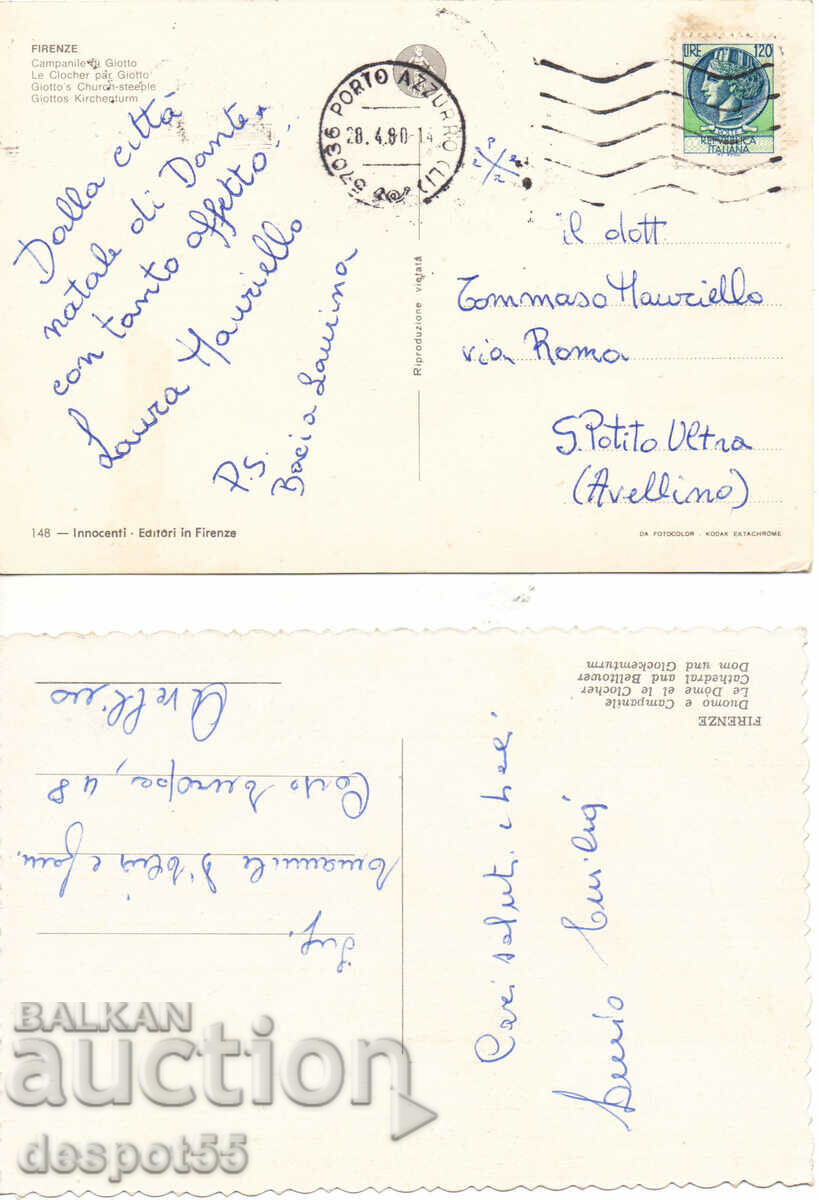 FIRENZE
Campanile di Giotto
Le Clocher par Giotto
Giotto's Church-steeple
Giottos Kirchenturm
Dalla città
natale di Dante
con tanto affetto...
Laura Mauriello
P.S.
Bacia Laurina
57036 PORTO AZZURRO (LI)
28.4.80-14
LIRE 120
REPUBBLICA
ITALIANA
Riproduzione vietata
il dott
Tommaso Mauriello
via Roma
S. Potito Ultra
(Avellino)
148 — Innocenti - Editori in Firenze
DA FOTOCOLOR - KODAK EKTACHROME
FIRENZE
Duomo e Campanile
Le Dôme el le Clocher
Cathedral and Belltower
Dom und Glockemturm
Cari saluti
Emanuele
Corso Europa, 48
Avellino
BALKAN
auction
despot55